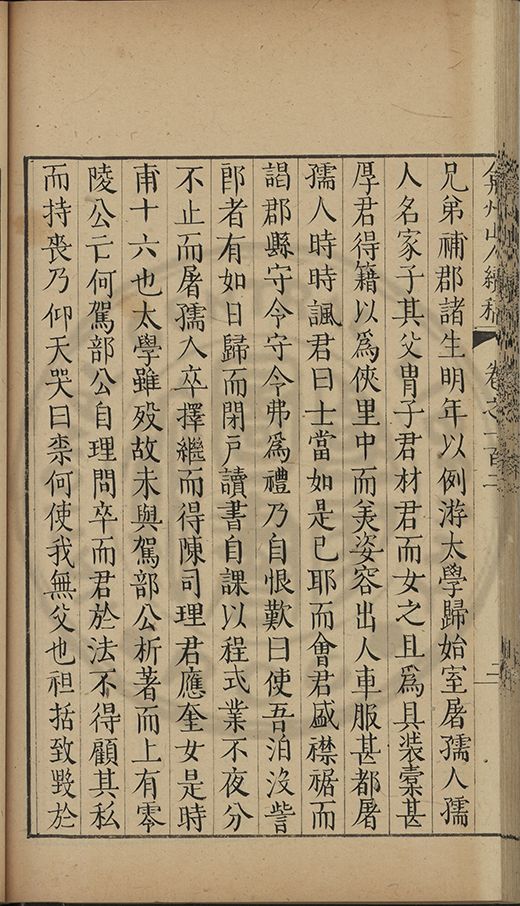 弇州山人續稿 卷之一百二 二
兄弟補郡諸生明年以例游太學歸始室屠孺人孺
人名家子其父冑子君材君而女之且爲具裝橐甚
厚君得籍以爲俠里中而美姿容出入車服甚都屠
孺人時時諷君曰士當如是已耶而會君盛襟裾而
謁郡縣守令守令弗爲禮乃自恨歎曰使吾泊沒訾
郎者有如日歸而閉戶讀書自課以程式業不夜分
不止而屠孺人卒擇繼而得陳司理君應奎女是時
甫十六也太學雖歿故未與駕部公析著而上有零
陵公亡何駕部公自理問卒而君於法不得顧其私
而持喪乃仰天哭曰柰何使我無父也袒括致毀於